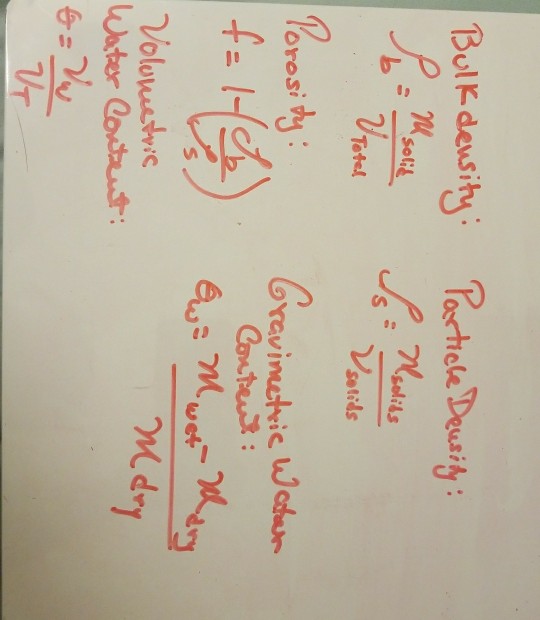 Bulk density:
ρb = m solid / V Total
Particle Density:
ρs = m solids / V solids
Porosity:
f = 1-(ρb / ρs)
Gravimetric Water
Content:
θw = m wet - m dry / m dry
Volumetric
Water Content:
θ = Vw / VT